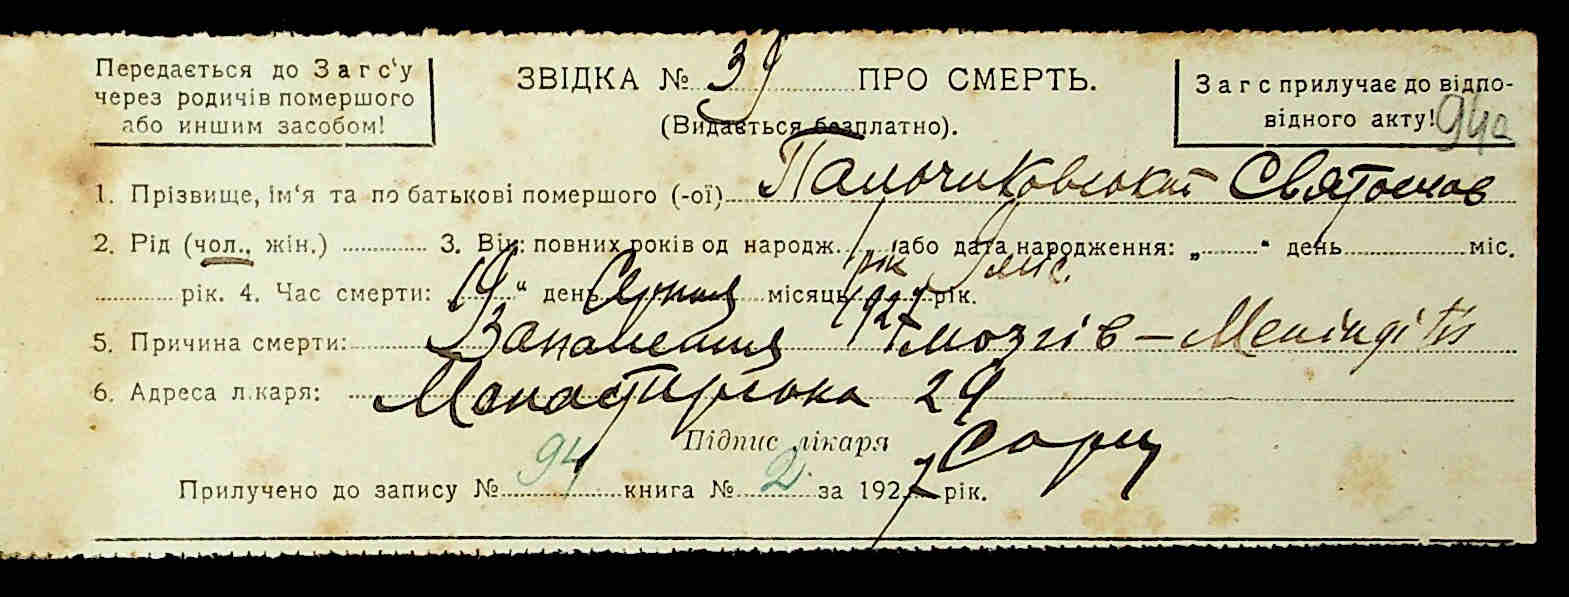 Передається до Загс'у
через родичів помершого
або иншим засобом!
ЗВІДКА № 39 ПРО СМЕРТЬ.
(Видається безплатно).
Загс прилучає до відпо-
відного акту! 94а
1. Прізвище, ім'я та по батькові помершого (-ої) Святослав
2. Рід (чол., жін.) 3. Вік: повних років од народж. 1 або дата народження: „ “ день міс.
рік міс.
рік. 4. Час смерти: 19“ день Серпня місяць 1927 рік.
5. Причина смерти: Запалення мозгів – Менінgitis
6. Адреса лікаря: Монастирська 29
Підпис лікаря
Прилучено до запису № 94 книга № 2 за 1927 рік.